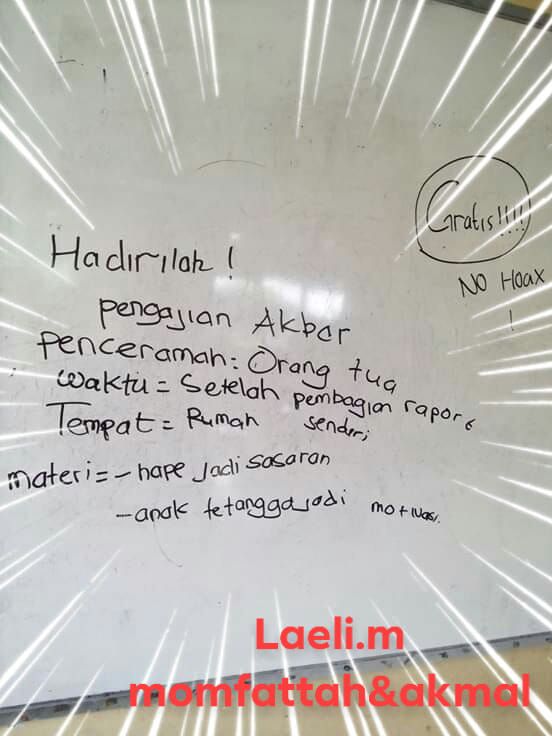 Gratis!!!!
NO Hoax
!
Hadirilah !
pengajian Akbar
penceramah: Orang tua
waktu = Setelah pembagian rapore
Tempat = Rumah sendiri
materi = - hape Jadi sasaran
- anak tetangga jadi motivasi.
Laeli.m
momfattah&akmal